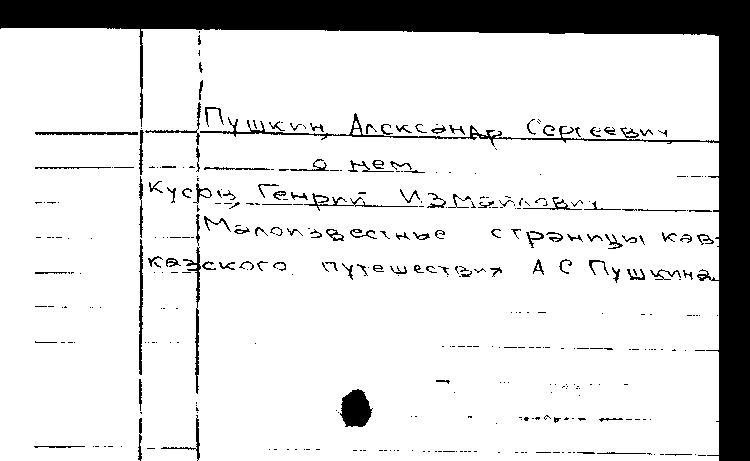 Пушкин, Александр Сергеевич
о нем.
Кусов, Генрий Измайлович.
Малоизвестные страницы кав-
казского путешествия А С Пушкина